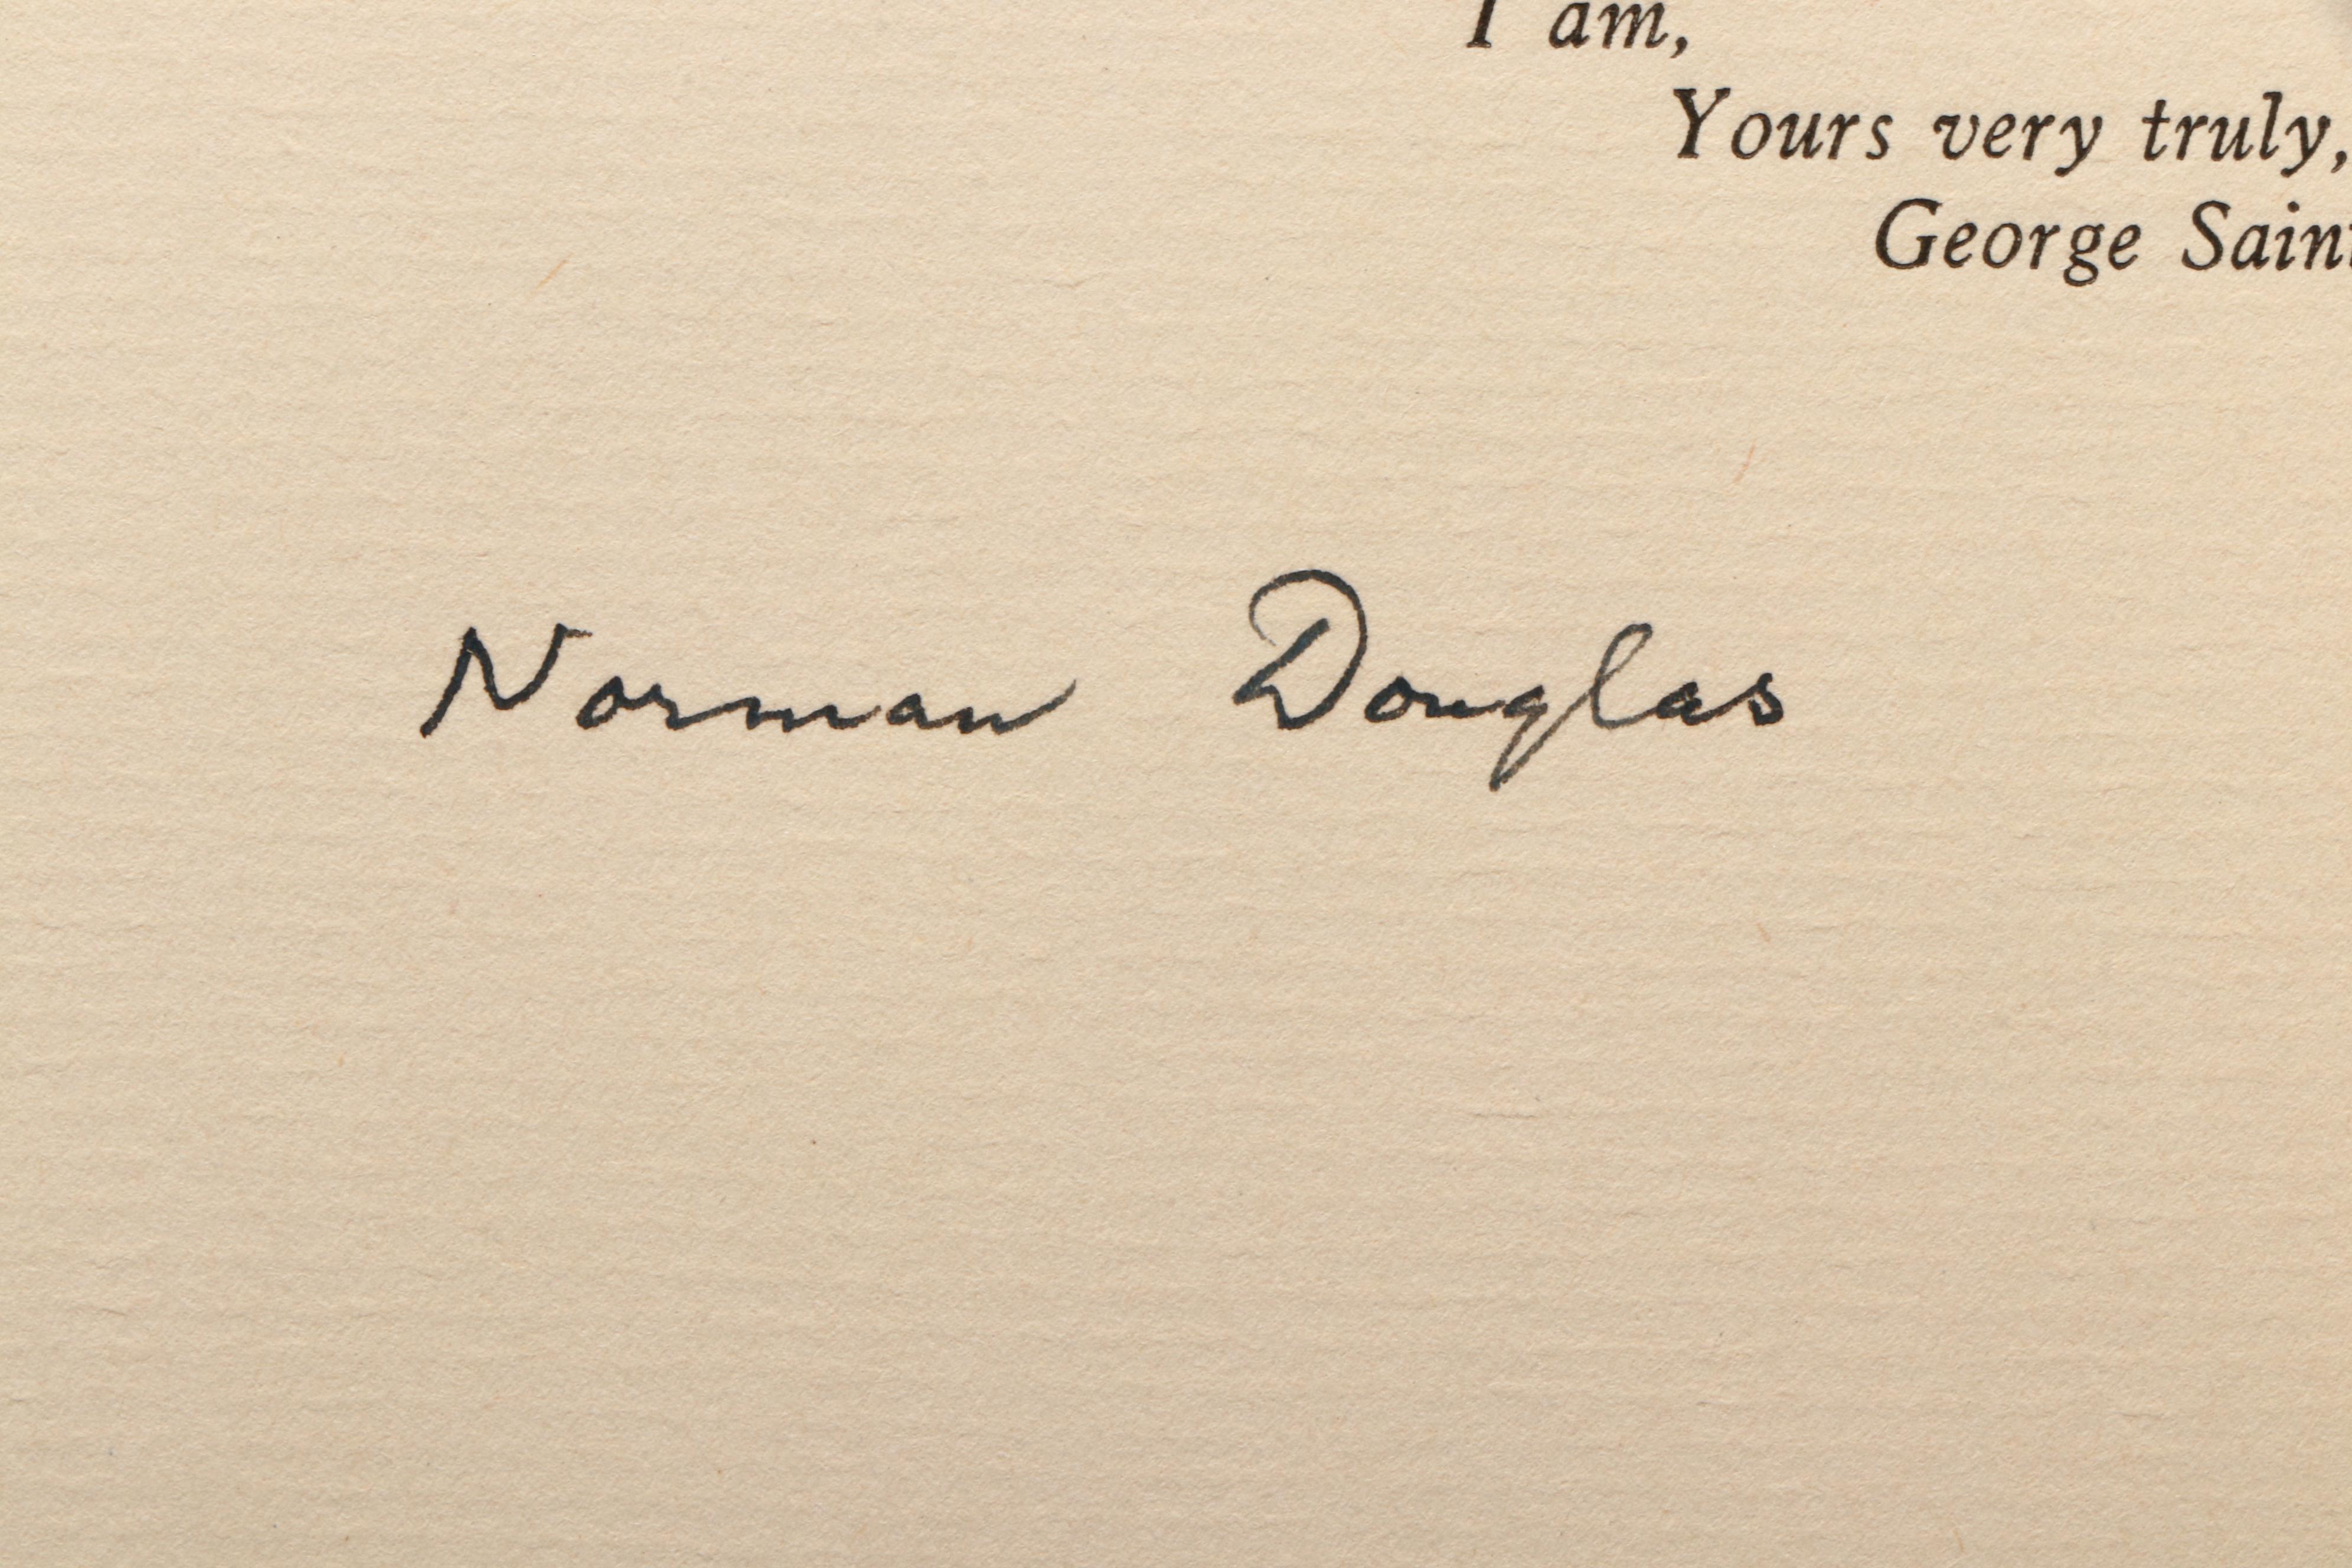 I am,
Yours very truly,
George Sain
Norman Douglas